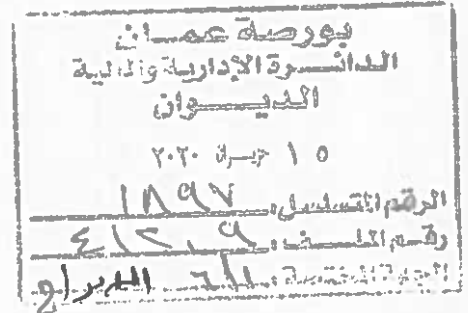 بورصة عمـــان
الدائـــرة الإدارية والمالية
الديـــوان
١٥ حزيران ٢٠٢٠
الرقم المتسلسل ١٨٩٧
رقم الملف ٤١٢٠٩
الجهة المختصة